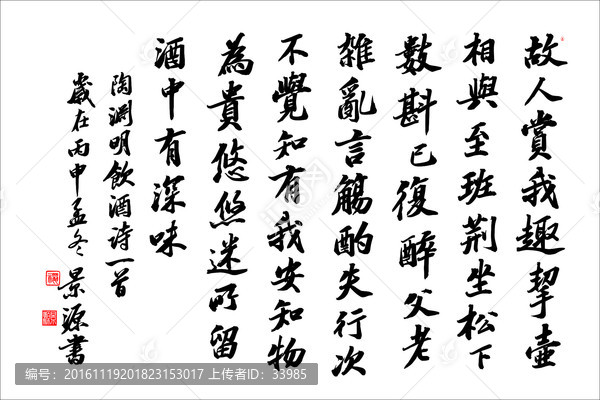 故人賞我趣挈壺
相與至班荆坐松下
數斟已復醉父老
雜亂言觴酌失行次
不覺知有我安知物
為貴悠悠迷所留
酒中有深味
陶渊明飲酒诗一首
歲在丙申孟冬景源書
编号：20161119201823153017 上传者ID：33985